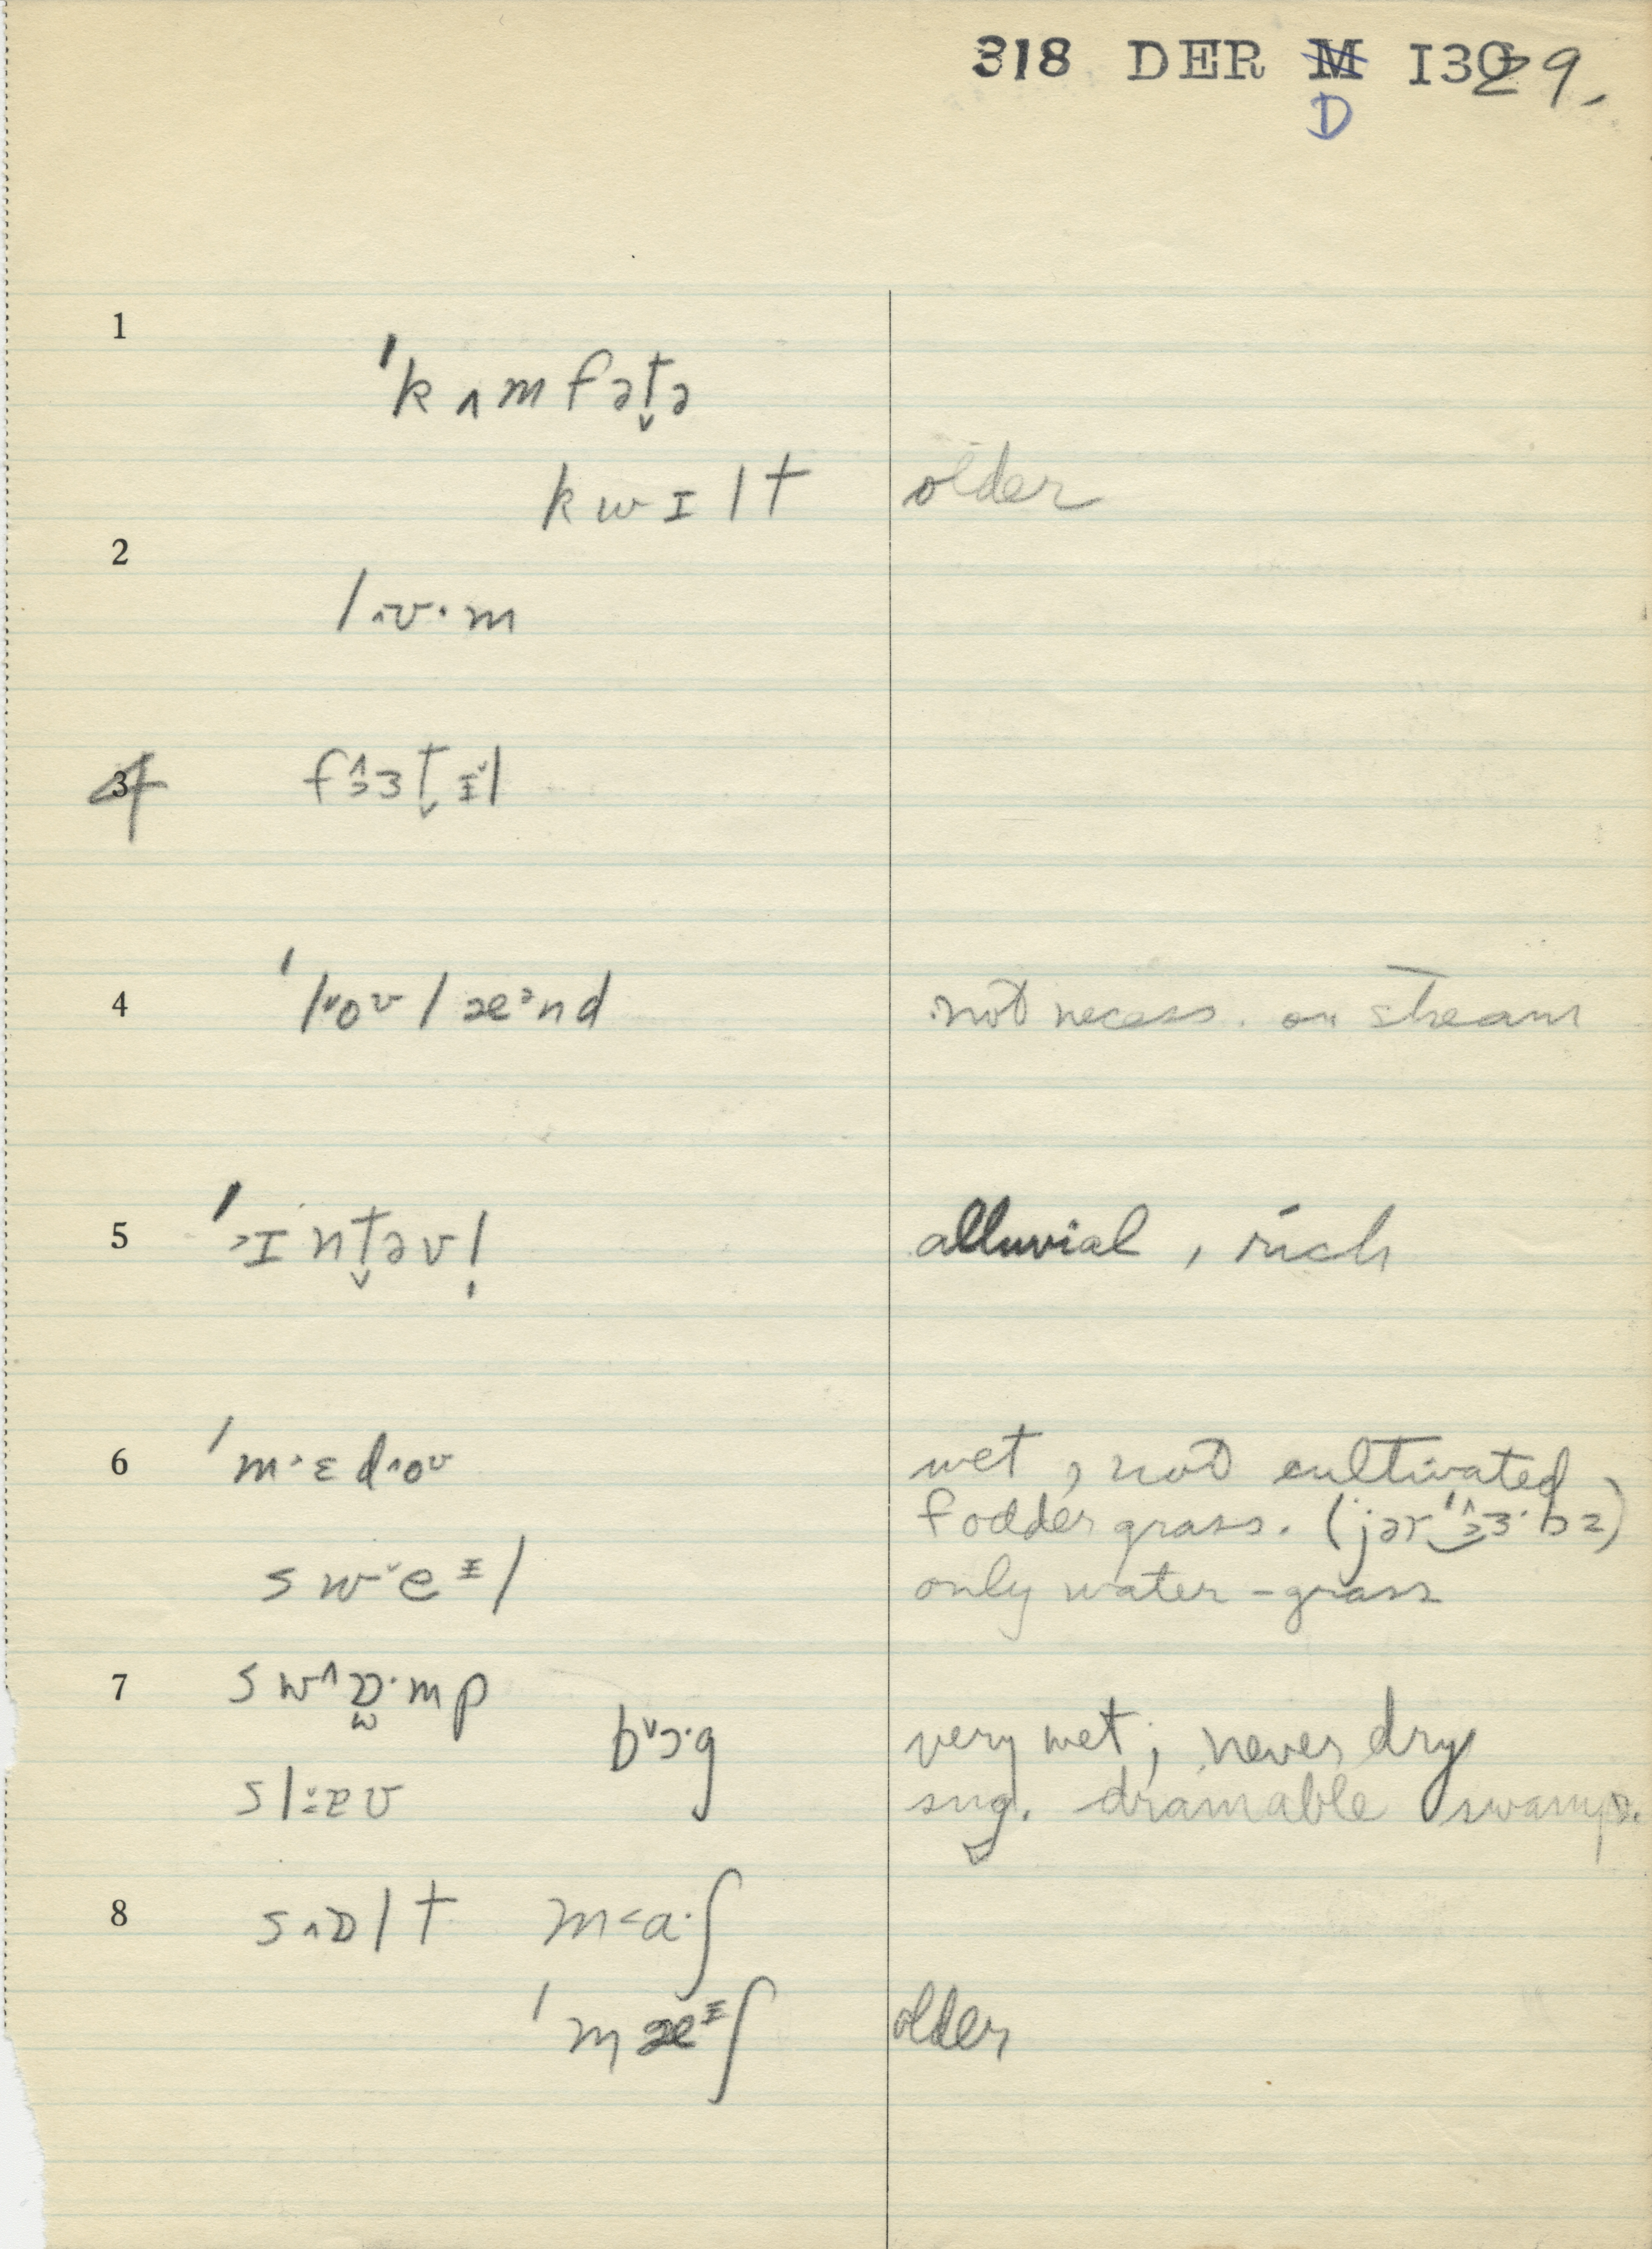 318 DER M I30 29.
D
1
ˈkʌmfət̬ə
kwɪlt older
2
l˄ʊ·m
3 4 f˄ɜɜt̬ɪ̵̌l
4 ˈl˅oʊlæᵊnd not necess. on stream
5 ˈ˃ɪnt̬əvl̩ alluvial, rich
6 ˈm˃ɛd˄oʊ wet, not cultivated
fodder grass. (jərˈ˄ɜɜ·bz)
sw˅eᵻl only water-grass
7 sw˄ɒ̫·mp
b˅ɔ·g very wet; never dry
slːɐʊ sug. drainable swamp.
8 s˄ɒlt m˂a·ʃ
ˈmæᵻʃ older